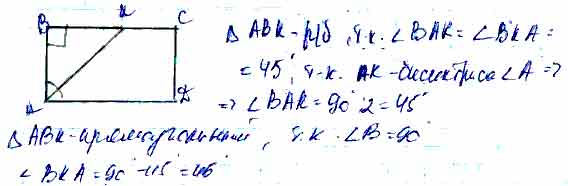 B K C
A D
Δ ABK - р/б, т.к. ∠BAK = ∠BKA =
= 45°, т.к. AK - биссектриса ∠A =>
=> ∠BAK = 90° : 2 = 45°
Δ ABK - прямоугольный, т.к. ∠B = 90°
∠BKA = 90° - 45° = 45°